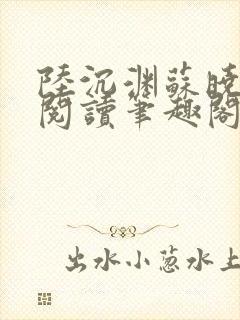 陸沉淵蘇曉
閱讀筆趣閣
出水小葱水上